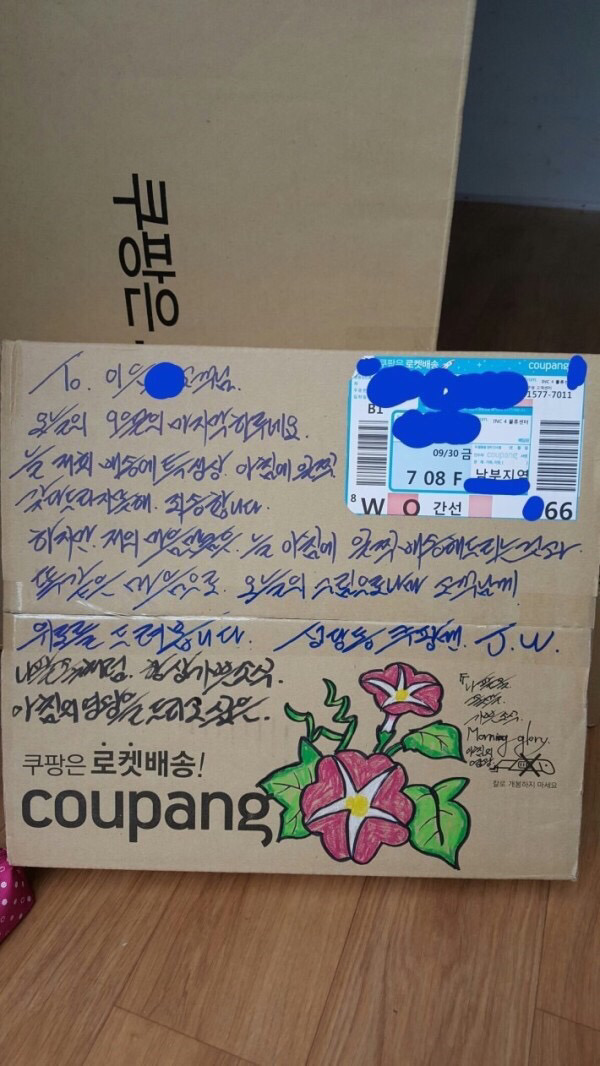 쿠팡은
To. 이 고객님.
오늘의 9월의 마지막 하루네요.
늘 저희 배송에 특성상 아침에 일찍
갖다드리지 못해 죄송합니다.
하지만. 저의 마음만은 늘 아침에 일찍 배송해드리는것과
똑같은 마음으로 오늘의 그림으로나마 고객님께
위로를 드려봅니다. 쿠팡맨. J.W.
나팔꽃처럼. 항상 기쁜소식.
아침의 영광을 드리고 싶은.
쿠팡은 로켓배송!
coupang
쿠팡은 로켓배송
coupang
1577-7011
B1
09/30 금
7 08 F 남부지역
8
W O 간선 66
F. 나팔꽃
기쁜소식
Morning glory.
아침의
영광
칼로 개봉하지 마세요